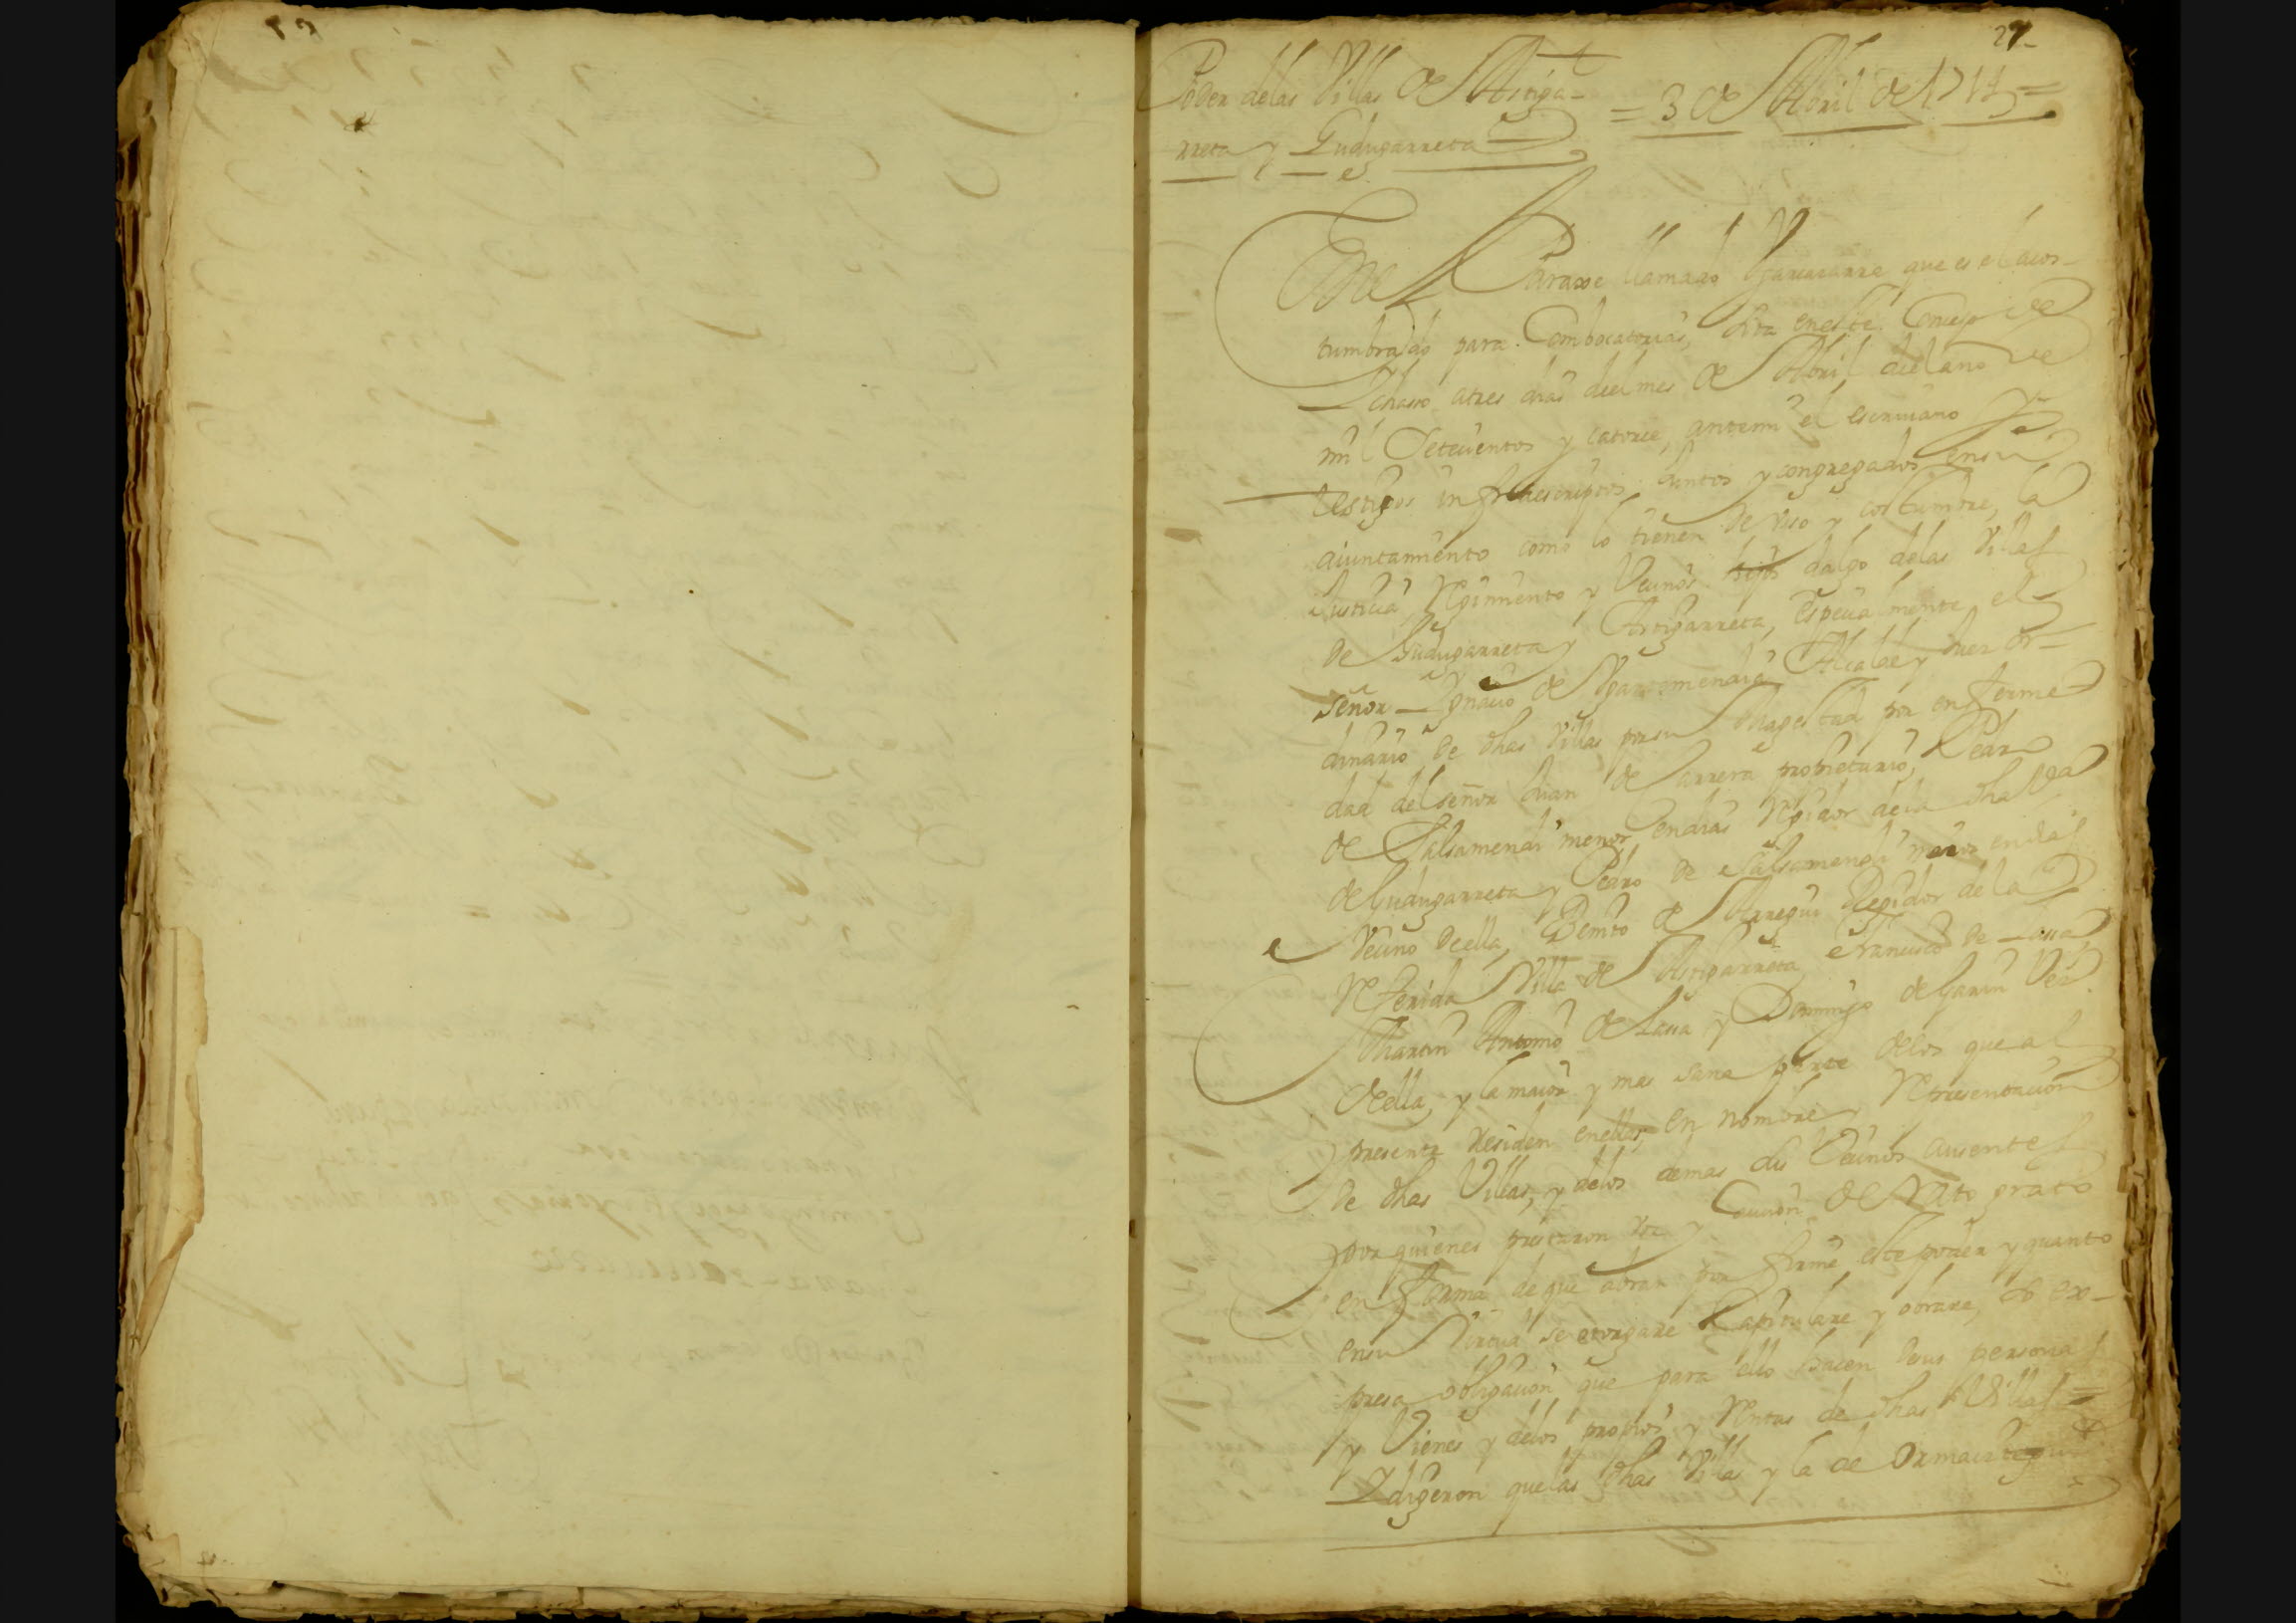 27
Poder delas Villas de Astiga-
rreta y Gudugarreta = 3 de Abril de 1714 =
En el Paraxe llamado que es el acos-
tumbrado para Combocatorias, sita eneste Concejo de
atres dias deel mes de Abril del año de
mil Setecientos y catorce, antemi el escriuano y
testigos infraescriptos, Juntos y congregados ensu
aiuntamiento como lo tienen de vso y costumbre, la
Justicia Regimiento y Vecinos hijos dalgo delas Villas
de Gudugarreta y Astigarreta, Especialmente el
señor Ygnacio de Alcalde y Juez or-
dinario de dhas Villas por su Magestad por enferme
dad del señor Juan de Larrera proprietario, Pedro
de Salsamendi menor endias Regidor dela dha Va
de Gudugarreta y Pedro de Salsamendi maior endias
Vecino deella, Benito de Arregui Regidor de la
Referida Villa de Astigarreta, Francisco de Lasa
Martin Antonio de Lasa y Domingo de Garin Vez.
deella, y la maior y mas sana parte delos que al
presente Residen enellas, en nombre y Representacion
de dhas Villas, y delos demas sus Vecinos ausentes
por quienes prestaron voz y Caucion de Rato grato
en forma de que abran por firme este poder y quanto
ensu Virtud se otorgare Capitulare y obrare, so ex-
presa obligacion que para ello hacen desus personas
y Vienes y delos propios y Rentas de dhas Villas =
Y digeron quelas dhas Villas y la de Ormaiztegui